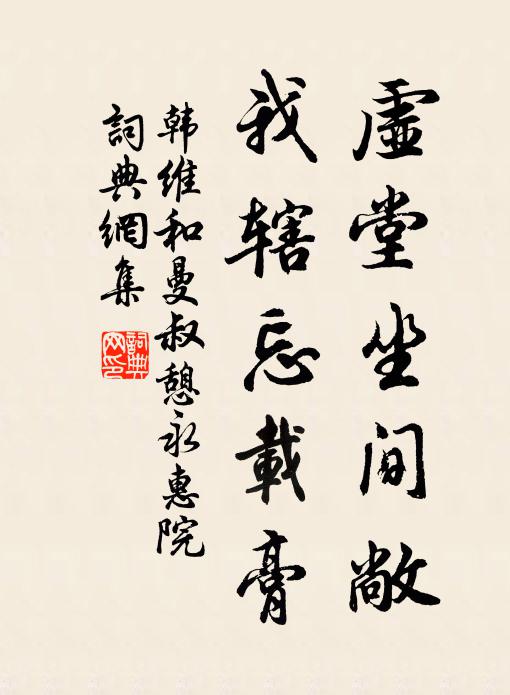 虛堂坐间敞
我辖忘載膏
韩维和曼叔憩永惠院
詞典網集
詞典网印